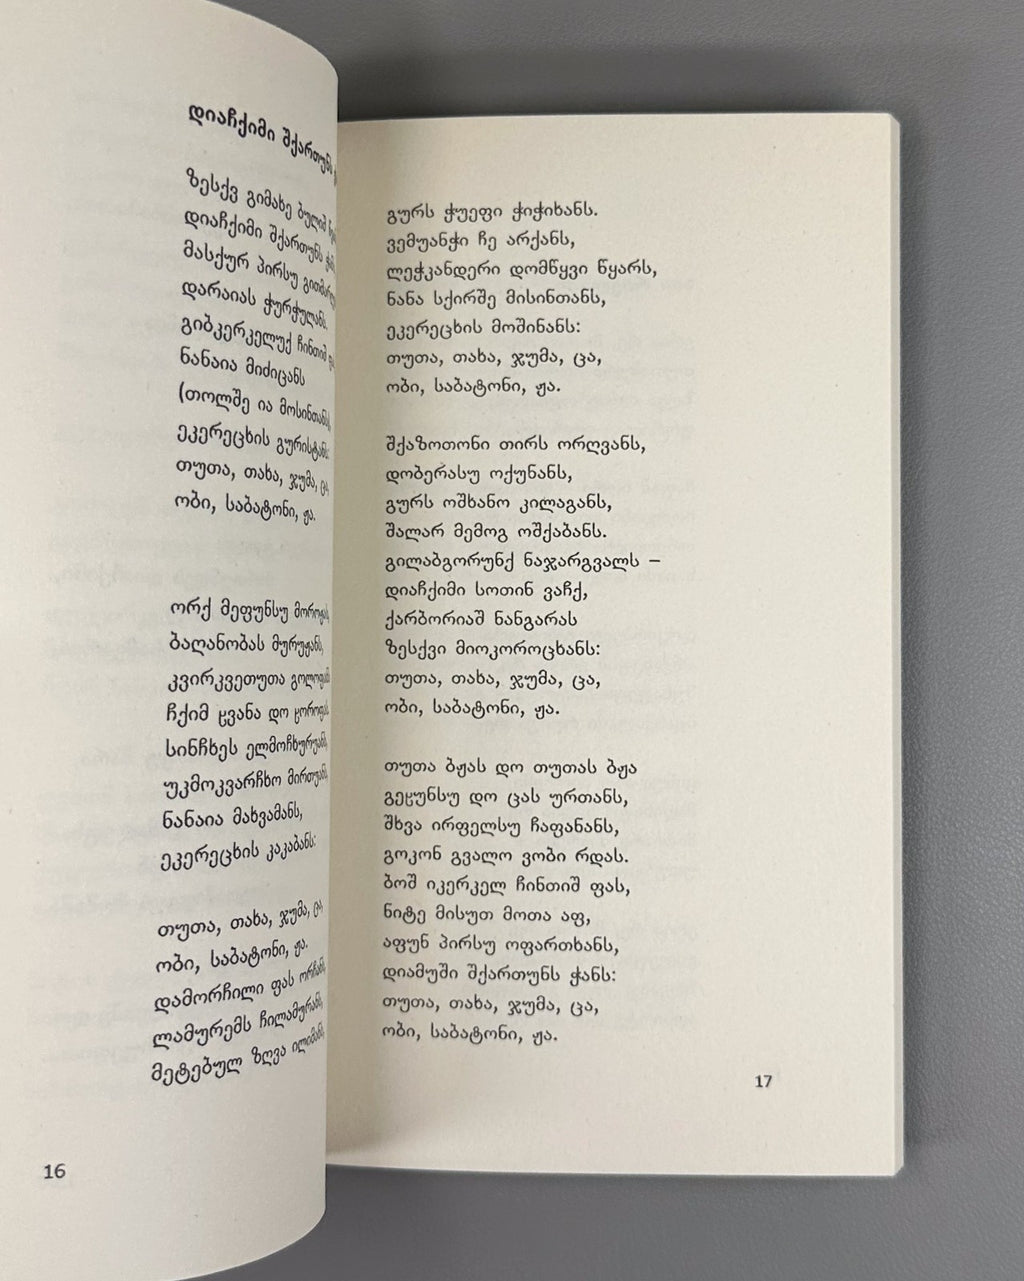 დიაჩქიმი შქართუნს
ზესქვ გიმახე ბულიშ
დიაჩქიმი შქართუნს ჭანს,
მასქურ პირსუ
დარაიას ჭურჭულანს.
გიბკერკელუქ ჩინთიშ
ნანაია მიძიცანს
(თოლშე ია მოსინთანს,
ეკერეცხის გურისტანს:
თუთა, თახა, ჯუმა, ცა,
ობი, საბატონი, ჟა.
ორქ მეფუნსუ
ბაღანობას მურუჟანს,
კვირკვეთუთა
ჩქიმ ჸვანა დო ჸოროფას,
სინჩხეს
უკმოკვარჩხო მირთუანს,
ნანაია მახვამანს,
ეკერეცხის კაკაბანს:
თუთა, თახა, ჯუმა, ცა,
ობი, საბატონი, ჟა.
დამორჩილი ფას ორჩანს,
ლამურემს ჩილამურანს,
მეტებულ ზღვა ილიმანს,
16
გურს ჭუეფი ჭიჭიხანს.
ვემუანჭი ჩე არქანს,
ლეჭკანდერი დომწყვი წყარს,
ნანა სქირშე მისინთანს,
ეკერეცხის მოშინანს:
თუთა, თახა, ჯუმა, ცა,
ობი, საბატონი, ჟა.
შქაზოთონი თირს ორღვანს,
დობერასუ ოქუნანს,
გურს ოშხანო კილაგანს,
შალარ მემოგ ოშქაბანს.
გილაბგორუნქ ნაჯარგვალს –
დიაჩქიმი სოთინ ვაჩქ,
ქარბორიაშ ნანგარას
ზესქვი მიოკოროცხანს:
თუთა, თახა, ჯუმა, ცა,
ობი, საბატონი, ჟა.
თუთა ბჟას დო თუთას ბჟა
გეჸუნსუ დო ცას ურთანს,
შხვა ირფელსუ ჩაფანანს,
გოკონ გვალო ვობი რდას.
ბოშ იკერკელ ჩინთიშ ფას,
ნიტე მისუთ მოთა აფ,
აფუნ პირსუ ოფართხანს,
დიამუში შქართუნს ჭანს:
თუთა, თახა, ჯუმა, ცა,
ობი, საბატონი, ჟა.
17